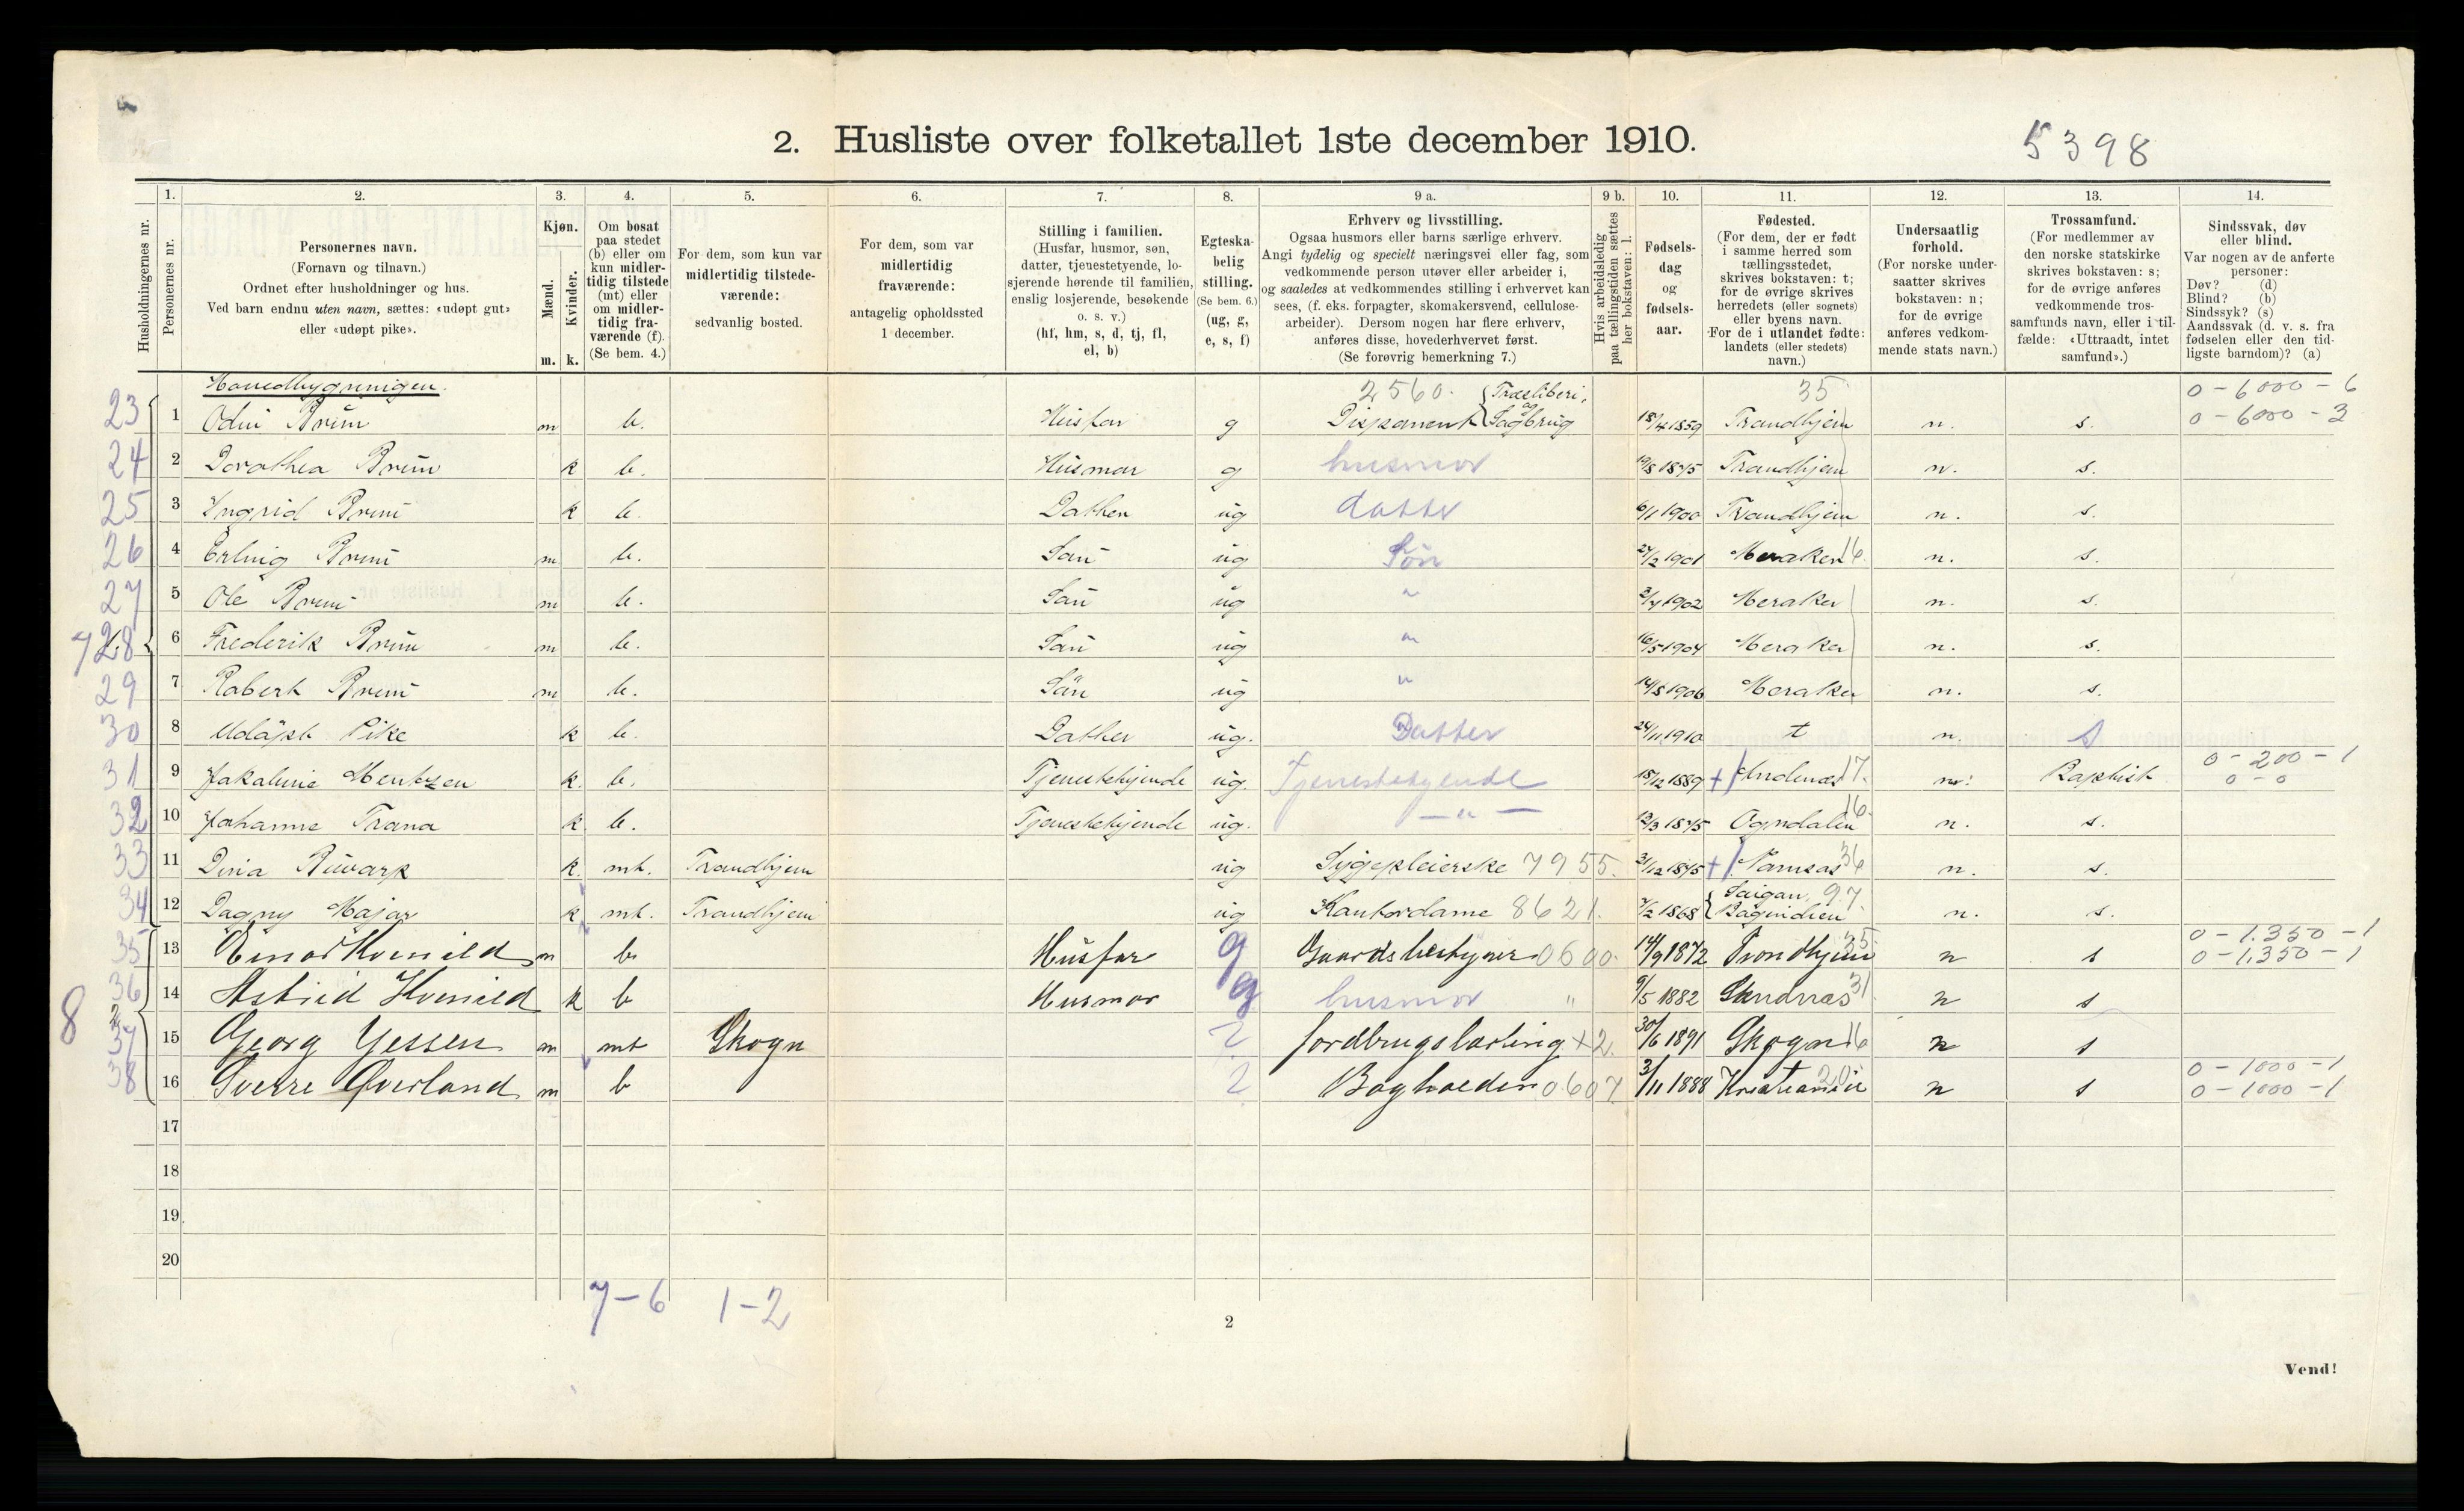 2. Husliste over folketallet 1ste december 1910.
5398
Husholdningernes nr.
1. Personernes nr.
2. Personernes navn.
(Fornavn og tilnavn.)
Ordnet efter husholdninger og hus.
Ved barn endnu uten navn, sættes: «udøpt gut»
eller «udøpt pike».
3. Kjøn.
Mænd. Kvinder.
m. k.
4. Om bosat
paa stedet
(b) eller om
kun midler-
tidig tilstede
(mt) eller
om midler-
tidig fra-
værende (f).
(Se bem. 4.)
5. For dem, som kun var
midlertidig tilstede-
værende:
sedvanlig bosted.
6. For dem, som var
midlertidig
fraværende:
antagelig opholdssted
1 december.
7. Stilling i familien.
(Husfar, husmor, søn,
datter, tjenestetyende, lo-
sjerende hørende til familien,
enslig losjerende, besøkende
o. s. v.)
(hf, hm, s, d, tj, fl,
el, b)
8. Egteska-
belig
stilling.
(Se bem. 6.)
(ug, g,
e, s, f)
9 a. Erhverv og livsstilling.
Ogsaa husmors eller barns særlige erhverv.
Angi tydelig og specielt næringsvei eller fag, som
vedkommende person utøver eller arbeider i,
og saaledes at vedkommendes stilling i erhvervet kan
sees, (f. eks. forpagter, skomakersvend, cellulose-
arbeider). Dersom nogen har flere erhverv,
anføres disse, hovederhvervet først.
(Se forøvrig bemerkning 7.)
9 b. Hvis arbeidsledig
paa tællingstiden sættes
her bokstaven: l.
10. Fødsels-
dag
og
fødsels-
aar.
11. Fødested.
(For dem, der er født
i samme herred som
tællingsstedet,
skrives bokstaven: t;
for de øvrige skrives
herredets (eller sognets)
eller byens navn.
For de i utlandet fødte:
landets (eller stedets)
navn.)
12. Undersaatlig
forhold.
(For norske under-
saatter skrives
bokstaven: n;
for de øvrige
anføres vedkom-
mende stats navn.)
13. Trossamfund.
(For medlemmer av
den norske statskirke
skrives bokstaven: s;
for de øvrige anføres
vedkommende tros-
samfunds navn, eller i til-
fælde: «Uttraadt, intet
samfund».)
14. Sindssvak, døv
eller blind.
Var nogen av de anførte
personer:
Døv? (d)
Blind? (b)
Sindssyk? (s)
Aandssvak (d. v. s. fra
fødselen eller den tid-
ligste barndom)? (a)
Hovedbygningen. 2560. Træsliberi, 35 0 - 6000 - 6
23 1 Odin Brun m b. Husfar g Disponent og Sagbrug 18/4 1859 Trondhjem n. s. 0 - 6000 - 3
24 2 Dorothea Brun k b. Husmor g husmor 19/8 1875 Trondhjem n. s.
25 3 Ingrid Brun k b. Datter ug datter 6/1 1900 Trondhjem n. s.
26 4 Erling Brun m b. Søn ug Søn 27/2 1901 Meraker 16 n. s.
27 5 Ole Brun m b. Søn ug " 3/4 1902 Meraker n. s.
7 28 6 Frederik Brun m b. Søn ug " 16/5 1904 Meraker n. s.
29 7 Robert Brun m b. Søn ug " 14/8 1906 Meraker n. s.
30 8 Udøpt Pike k b. Datter ug. Datter 24/11 1910 t n. s
31 9 Jakobine Mentzen k. b. Tjenestetyende ug. Tjenestetyende 15/12 1889 + Inderøen 17. n. Baptist 0 - 200 - 1
0 - 0
32 10 Johanne Trana k b. Tjenestetyende ug. — " — 12/3 1875 Ogndalen 16 n. s.
33 11 Dina k. mt. Trondhjem ug Sygepleierske 7955. 31/12 1875 + Namsos 36 n. s.
34 12 Dagny Hajar k mt. Trondhjem ug Kontordame 8621. 7/2 1868 Saigon 97 Bagindien n. s.
35 13 Einar Kvenild m b Husfar g Gaardsbestyrer 0600. 14/9 1872 Trondhjem 35 n s 0 - 1.350 - 1
0 - 1.350 - 1
36 14 Astrid Kvenild k b Husmor g husmor " 9/5 1882 Sandnæs 31 n s
8 37 15 Georg Yessen m mt Skogn ? Jordbrugslærling +2. 30/6 1891 Skogn 16 n s
38 16 Sverre Øverland m b ? Bogholder 0607. 3/11 1888 Kristiania 20 n s 0 - 1000 - 1
0 - 1000 - 1
17
18
19
20
7 - 6 1 - 2
2
Vend!